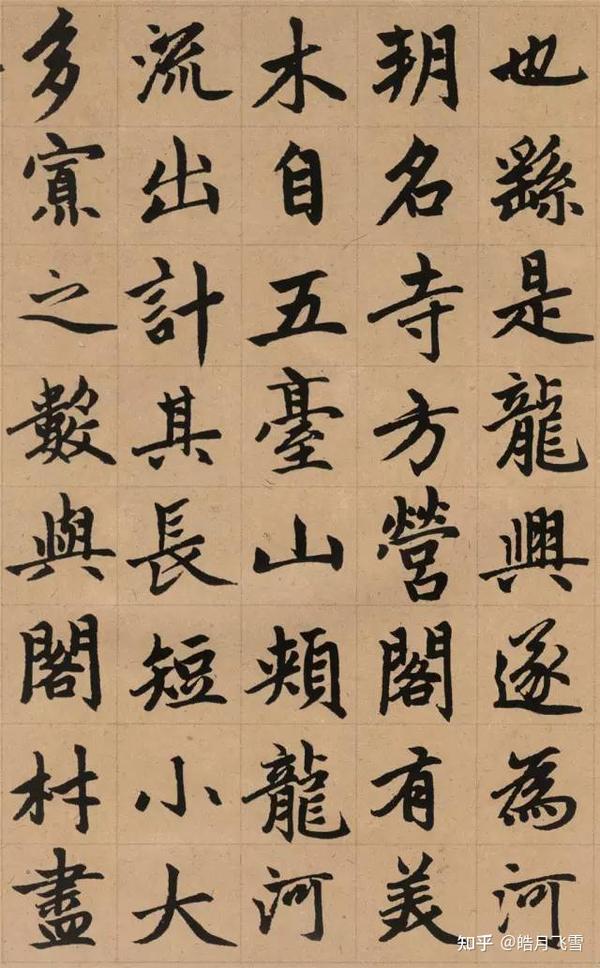 也繇是龍興遂為河
朔名寺方營閣有美
木自五臺山頰龍河
流出計其長短小大
多寡之數與閣材盡
知乎 @皓月飞雪